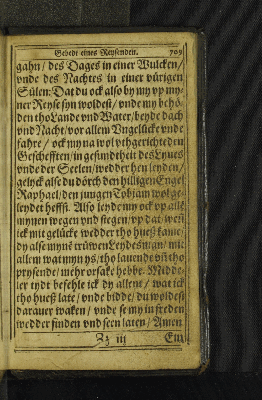 Gebedt eines Reysenden. 709
gahn / des Dages in einer Wulcken /
vnde des Nachtes in einer vürigen
Sülen: Dat du ock also by my vp my-
ner Reyse syn woldest / vnde my behö-
den tho Lande vnd Water / beyde dach
vnd Nacht / vor allem Vngelücke vnde
fahre / ock my na wol vthgerichteden
Geschefften / in gesundtheit des Lyues
vnde der Seelen / wedder hen leyden /
gelyck alse du dörch den hilligen Engel
Raphael / den jungen Tobiam wol ge-
leydet heffst. Also leyde my ock vp alle
mynen wegen vnd stegen / vp dat
ick mit gelücke wedder tho hueß kame /
dy alse myne trüwen Leydesman / mit
allem wat myn ys / tho lauende vñ tho
prysende / mehr orsake hebbe. Midde-
ler tydt befehle ick dy allent / wat ick
tho hueß late / vnde bidde / du woldest
darauer waken / vnde se my in freden
wedder finden vnd seen laten / Amen
Zz iij Ein